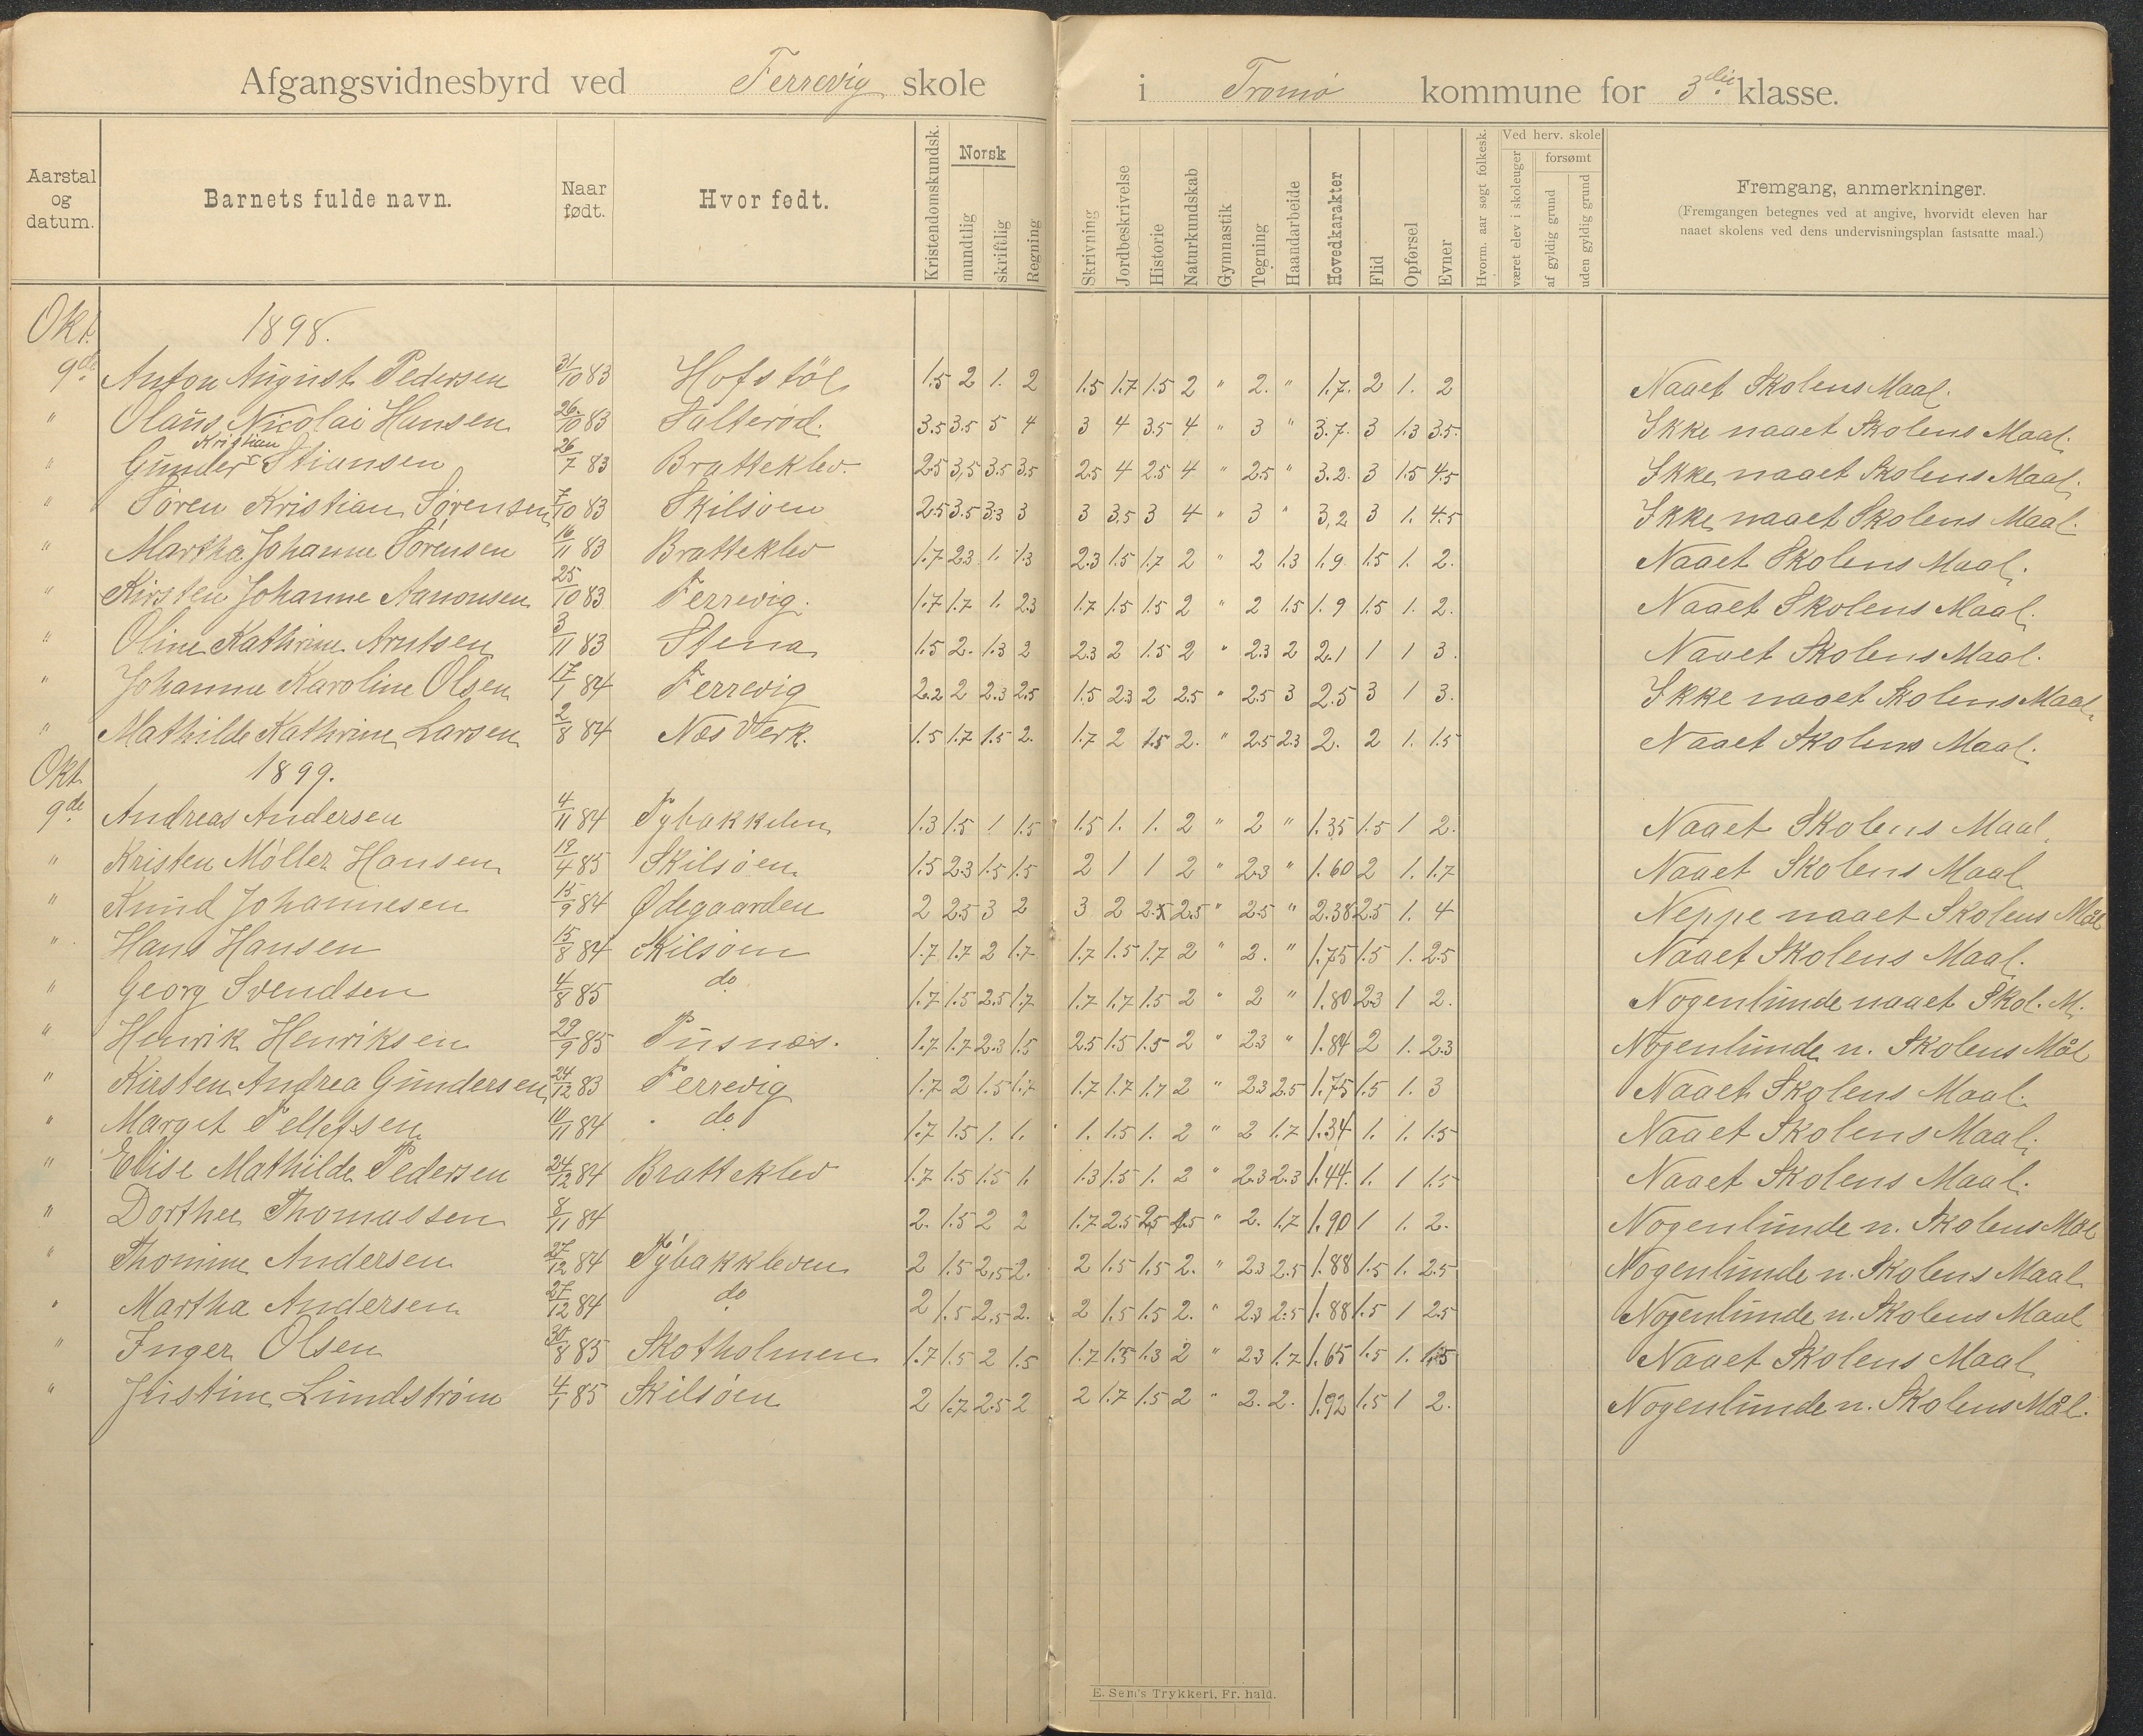 Afgangsvidnesbyrd ved Færrevig skole i Tromø kommune for 3die klasse.
Aarstal og datum. Barnets fulde navn. Naar født. Hvor født. Kristendomskundsk. Norsk mundtlig skriftlig Regning Skrivning Jordbeskrivelse Historie Naturkundskab Gymnastik Tegning Haandarbeide Hovedkarakter Flid Opførsel Evner Hvorm. aar søgt folkesk. Ved herv. skole været elev i skoleuger forsømt af gyldig grund uden gyldig grund Fremgang, anmerkninger.
(Fremgangen betegnes ved at angive, hvorvidt eleven har
naaet skolens ved dens undervisningsplan fastsatte maal.)
Okt. 1898.
9de Anton August Pedersen 31/10 83 Hofstöl 1.5 2 1. 2 1.5 1.7 1.5 2 " 2. " 1.7. 2 1. 2 Naaet Skolens Maal.
" Olaus Nicolai Hansen 26/10 83 Salterød. 3.5 3.5 5 4 3 4 3.5 4 " 3 " 3.7. 3 1.3 3.5. Ikke naaet Skolens Maal.
Kristian
" Gunder Stiansen 26/7 83 Bratteklev. 2.5 3,5 3.5 3.5 2.5 4 2.5 4 " 2.5 " 3.2. 3 1.5 4.5 Ikke naaet Skolens Maal.
" Søren Kristian Sørensen 7/10 83 Skilsøen 2.5 3.5 3.3 3 3 3.5 3 4 " 3 " 3,2 3 1. 4.5 Ikke naaet Skolens Maal.
" Martha Johanne Sørensen 16/11 83 Bratteklev 1.7 2.3 1. 1.3 2.3 1.5 1.7 2 " 2 1.3 1.9 1.5 1. 2. Naaet Skolens Maal.
" Kirsten Johanne Aanonsen 25/10 83 Færrevig. 1.7 1.7 1. 2.3 1.7 1.5 1.5 2 " 2 1.5 1.9 1.5 1. 2. Naaet Skolens Maal.
" Oline Kathrine Arntsen 3/11 83 Stena 1.5 2. 1.3 2 2.3 2 1.5 2 " 2.3 2 2.1 1 1 3. Naaet Skolens Maal.
" Johanne Karoline Olsen 17/1 84 Færrevig 2.2 2 2.3 2.5 1.5 2.3 2 2.5 " 2.5 3 2.5 3 1 3. Ikke naaet Skolens Maal.
" Mathilde Kathrine Larsen 2/8 84 Næs Verk. 1.5 1.7 1.5 2. 1.7 2 1.5 2. " 2.5 2.3 2. 2 1. 1.5 Naaet Skolens Maal.
Okt. 1899.
9de Andreas Andersen 4/11 84 1.3 1.5 1 1.5 1.5 1. 1. 2 " 2 " 1.35 1.5 1 2. Naaet Skolens Maal.
" Kristen Møller Hansen 19/4 85 Skilsøen 1.5 2.3 1.5 1.5 2 1 1 2 " 2.3 " 1.60 2 1. 1.7 Naaet Skolens Maal
" Knud Johannesen 15/9 84 Ødegaarden 2 2.5 3 2 3 2 2.5 2.5 " 2.5 " 2.38 2.5 1. 4 Neppe naaet Skolens Mål
" Hans Hansen 15/8 84 Skilsøen 1.7 1.7 2 1.7 1.7 1.5 1.7 2 " 2. " 1.75 1.5 1. 2.5 Naaet Skolens Maal.
" Georg Svendsen 4/8 85 do 1.7 1.5 2.5 1.7 1.7 1.7 1.5 2 " 2 " 1.80 2.3 1 2. Nogenlunde naaet Skol. M.
" Henrik Henriksen 29/9 85 Pusnæs. 1.7 1.7 2.3 1.5 2.5 1.5 1.5 2 " 2.3 " 1.84 2 1. 2.3 Nogenlunde n. Skolens Mål
" Kirsten Andrea Gundersen 24/12 83 Færrevig 1.7 2 1.5 1.7 1.7 1.7 1.7 2 " 2.3 2.5 1.75 1.5 1. 3 Naaet Skolens Maal.
" Marget Tellefsen 10/11 84 do 1.7 1.5 1. 1. 1. 1.5 1. 2 " 2 1.7 1.34 1. 1. 1.5 Naaet Skolens Maal.
" Elise Mathilde Pedersen 24/12 84 Bratteklev 1.7 1.5 1.5 1. 1.3 1.5 1. 2 " 2.3 2.3 1.44. 1. 1 1.5 Naaet Skolens Maal.
" Dorthee Thomassen 8/11 84 2. 1.5 2 2 1.7 2.5 2.5 1.5 " 2. 1.7 1.90 1 1. 2. Nogenlunde n. Skolens Mål
" Thomine Andersen 27/12 84 Tybakkleven 2 1.5 2,5 2. 2 1.5 1.5 2. " 2.3 2.5 1.88 1.5 1. 2.5 Nogenlunde n. Skolens Maal
" Martha Andersen 27/12 84 do 2 1.5 2,5 2. 2 1.5 1.5 2. " 2.3 2.5 1.88 1.5 1 2.5 Nogenlunde n. Skolens Maal
" Inger Olsen 30/8 85 Skotholmen 1.7 1.5 2 1.5 1.7 1.5 1.3 2 " 2.3 1.7 1.65 1.5 1. 1.5 Naaet Skolens Maal
" Justine Lundstrøm 4/1 85 Skilsøen 2 1.7 2.5 2 2 1.7 1.5 2 " 2. 2. 1.92 1.5 1 2. Nogenlunde n. Skolens Mål.
E. Sem's Trykkeri, Fr. hald.